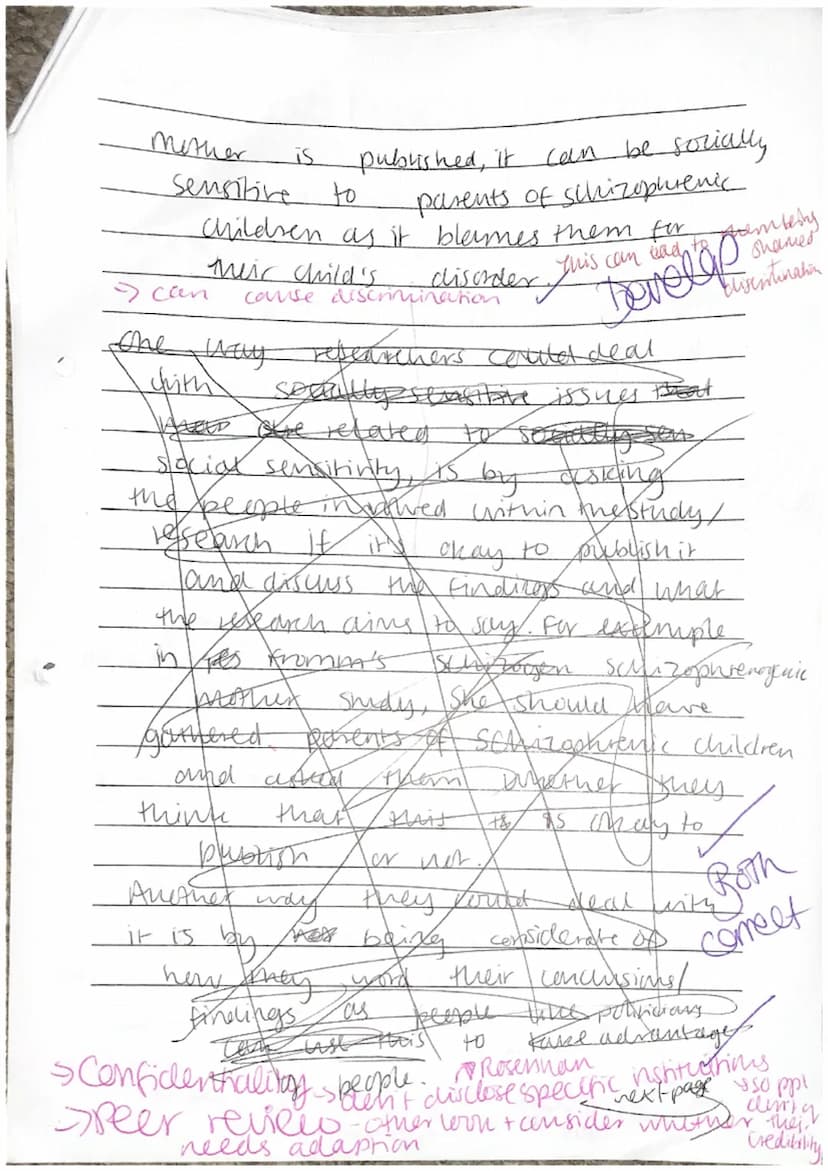 Mother is published, it can be socially
sensitive to parents of schizophrenic
children as it blames them for
their child's disorder. This can lead to them being shamed
discrimination
Develop
→ can cause discrimination
One way researchers could deal
with socially sensitive issues that
are related to socially sen
social sensitivity, is by asking
the people involved within the study/
research if it's okay to publish it
and discuss the findings and what
the research aims to say. For example
in Fromm's schizogen schizophrenogenic
Mother study, she should have
gathered parents of schizophrenic children
and asked them whether they
think that this is is okay to
publish or not.
Both
correct
Another way they could deal with
it is by being considerate of
how they word their conclusions/
findings as people like politicians
can use this to take advantage
of people.
next page
→ Confidentiality → don't disclose specific institutions
Rosenhan
→ so ppl
their
credibility
→ Peer review - other look + consider whether
needs adaption